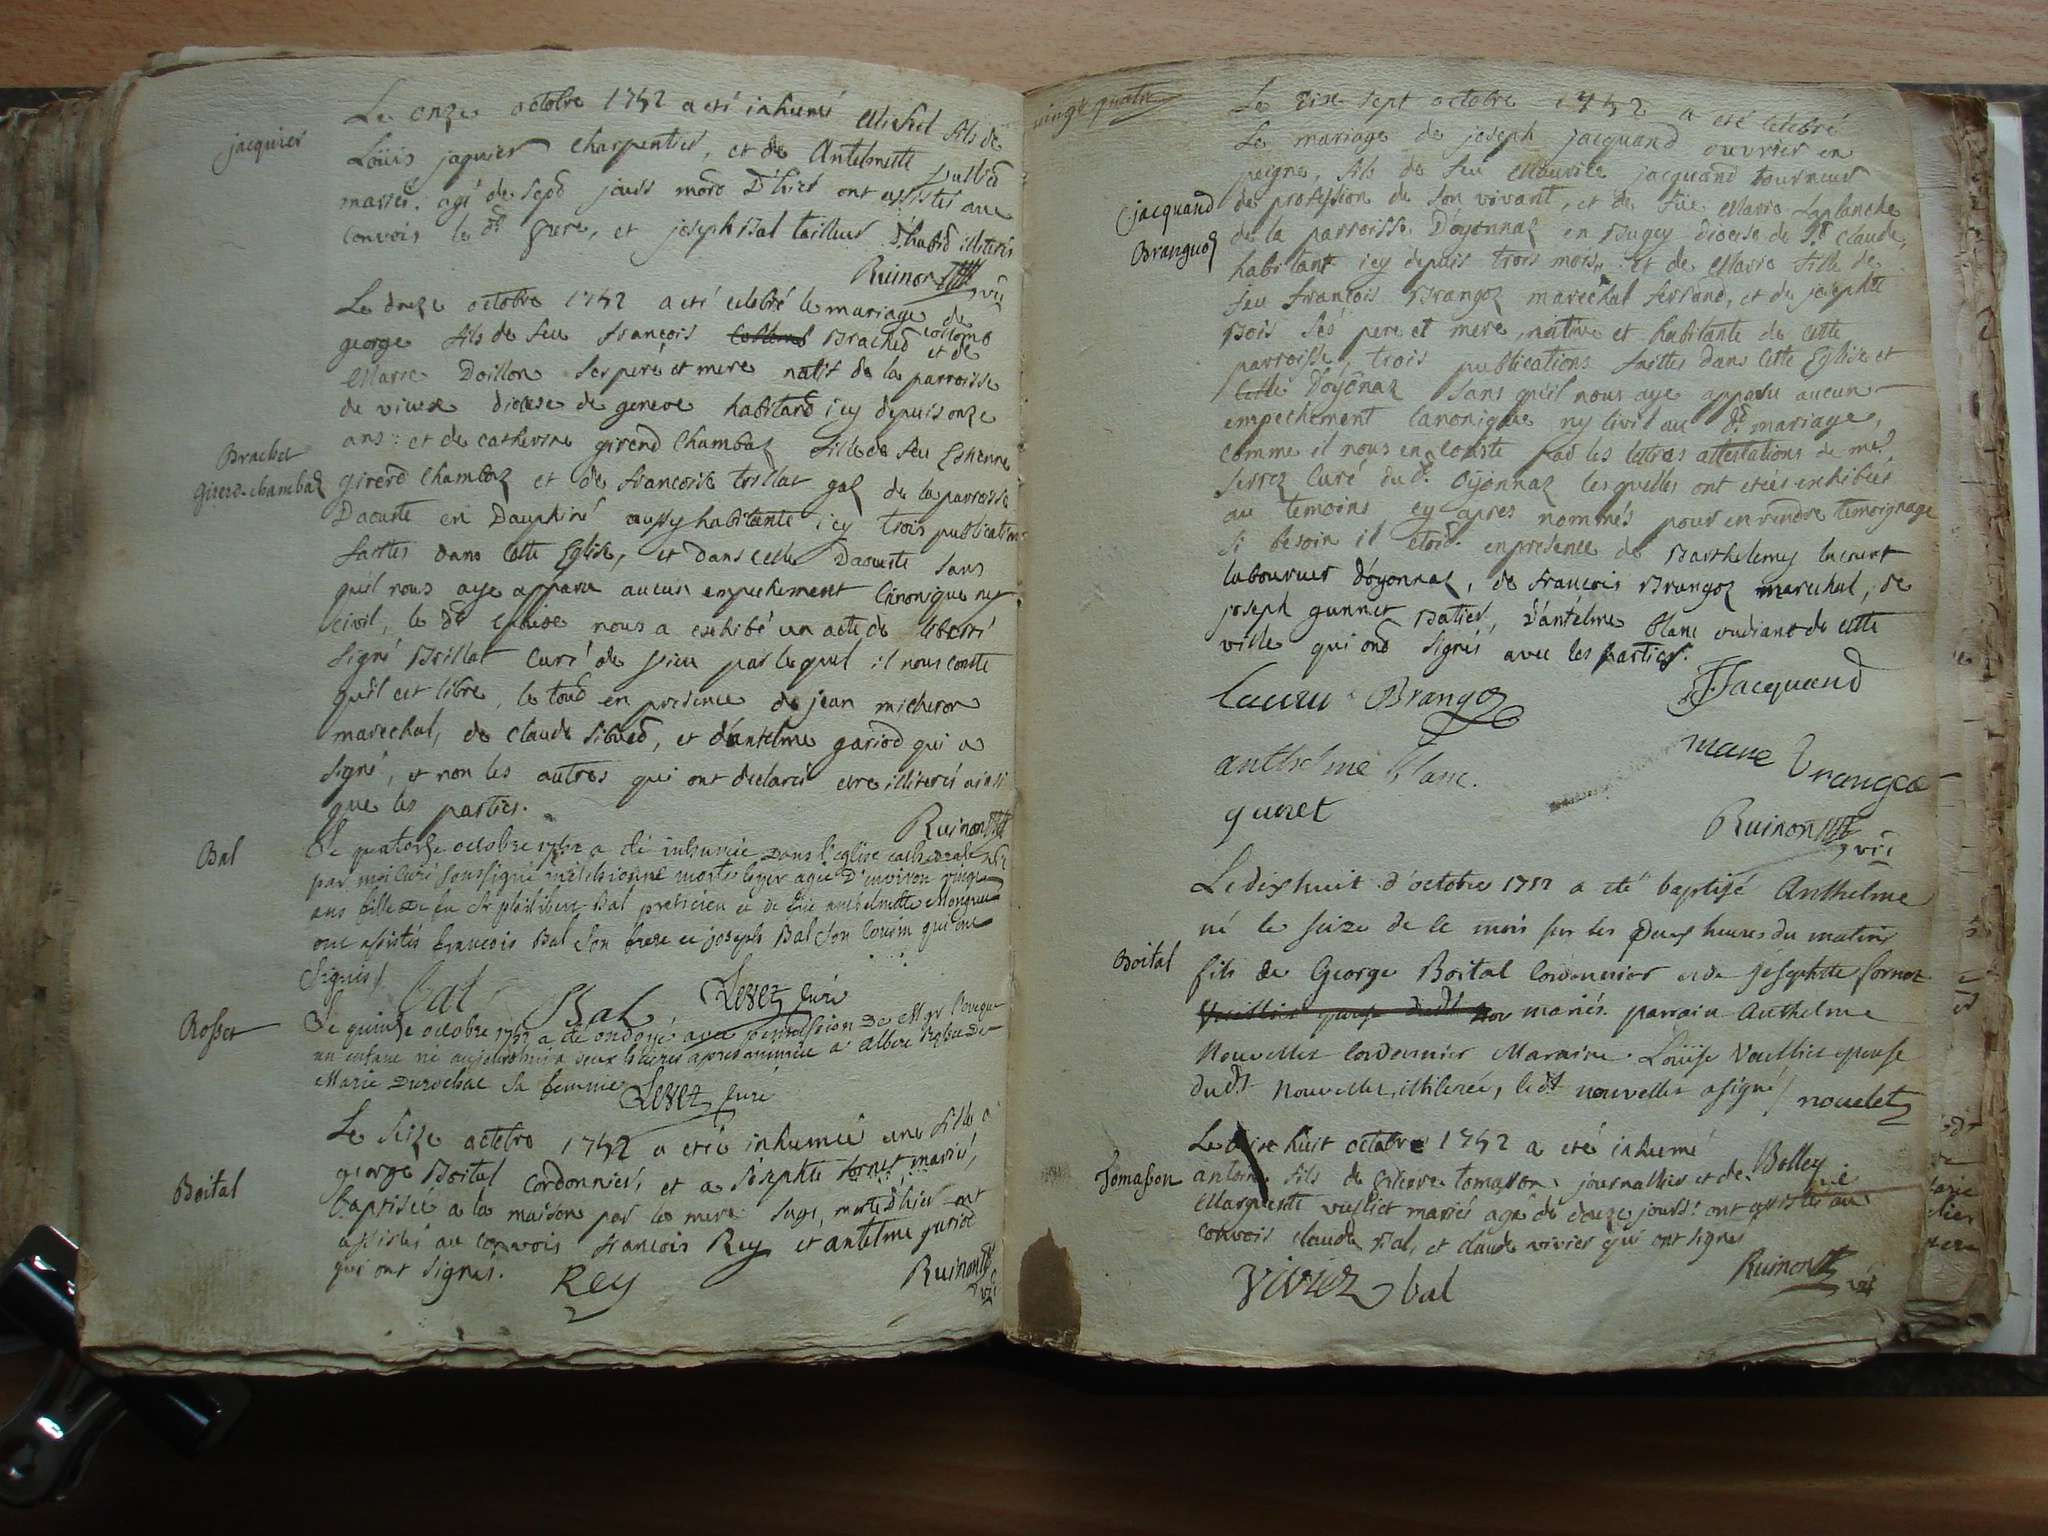 jacquier
Le onze octobre 1752 a eté inhumé Michel fils de
Loüis jaquier charpentier, et de Antelmette
mariés. agé de sept jours mort D'hier ont assistés aux
convois le dt frere, et joseph Bal tailleur d'habit illiterés
Ruinon vic
Brachet
Girerd-chambaz
Le douze octobre 1752 a eté celebré le mariage de
george fils de feu françois Brached et de
Marie Doillon ses pere et mere natif de la parroisse
de diocese de geneve habitand icy depuis onze
ans: et de catherine girerd Chambaz fille de feu Estienne
girerd chambaz et de francoise trillat gaz de la parroisse
Daouste en Dauphiné aussy habitante icy trois publications
faittes dans cette Eglise, et dans celle Daouste sans
quil nous aye apparu aucun empechement canonique ny
civil, le dt nous a exhibé un acte de liberté
signé Brillat Curé de par lequel il nous conste
qu'il est libre, le tout en presence de jean micheron
marechal, de claude Siberd, et d'antelme gariod qui a
signé, et non les autres qui ont declarés etre illiterés ainsi
que les parties.
Ruinon
Bal
Le quatorze octobre 1752 a été inhumée dans l'eglise cathedrale
par moi curé soussigné morte hyer agée D'environ vingt
ans fille de feu Sr philibert Bal praticien et de feüe anthelmette
ont assistés francois Bal son frere et joseph Bal son cousin qui ont
signés /
bal Bal Levet Curé
Rosset
Le quinze octobre 1752 a été ondoyé avec permission de Mgr l'eveque
un enfant né aujourdhui a deux heures apres a albert Rosset de
Marie Durochat sa femme Levet Curé
Boital
Le seize octobre 1752 a eteé inhumeé une fille a
george Boital cordonnier, et a Josephte Cornet mariés,
baptisée a la maison par la mere sage, morte D'hier ont
assistés au convois francois Rey et antelme gariod
qui ont signés.
Rey
Ruinon vic
vingt quatre
jacquand
Branguoz
Le dix sept octobre 1752 a eté celebré
le mariage de joseph jacquand ouvrier en
peigne, fils de feu Mourice jacquand tourneur
de profession de son vivant, et de füe Marie Laplanche
de la parroisse D'oyonnaz en Bugey diocese de St Claude
habitant icy depuis trois mois, et de Marie fille de
feu francois Brangoz marechal ferrand, et de josephte
Bois ses pere et mere, native et habitante de cette
parroisse, trois publications faittes dans cette Eglise et
celle d'oyonnaz sans qu'il nous aye apparu aucun
empechement canonique ny civil au dt mariage,
comme il nous en conste par les lettres attestations de mre
curé du dt Oyonnaz lesquelles ont etés exhibées
au temoins cy apres nommés pour en rendre temoignage
si besoin il etoit. en presence de Barthelemy lacroix
laboureur d'oyonnaz, de francois Brangoz marechal, de
joseph gunnet Batier, d'antelme blanc etudiant de cette
ville qui ont signés avec les parties.
Brangoz
J Jacquand
anthelme blanc.
marie Brangoz
gunet
Ruinon vic
Boital
Le dixhuit d'octobre 1752 a eté baptisé Anthelme
né le seize de ce mois sur les deux heures du matin
fils de George Boital Cordonnier et de Josephtte Cornet
mariés. parrain Anthelme
Nouvellet Cordonnier Maraine. Loüise Vuillier epouse
dudt Nouvellet, illiterée, ledt nouvellet a signé / nouelet
Bolley vié
Tomasson
Le dix huit octobre 1752 a eté inhumé
antoine fils de pierre tomasson journallier et de
Marguerite mariés agé de douze jours: ont assistés au
convois claude Bal, et claude vivier qui ont signés
Vivier bal
Ruinon vic